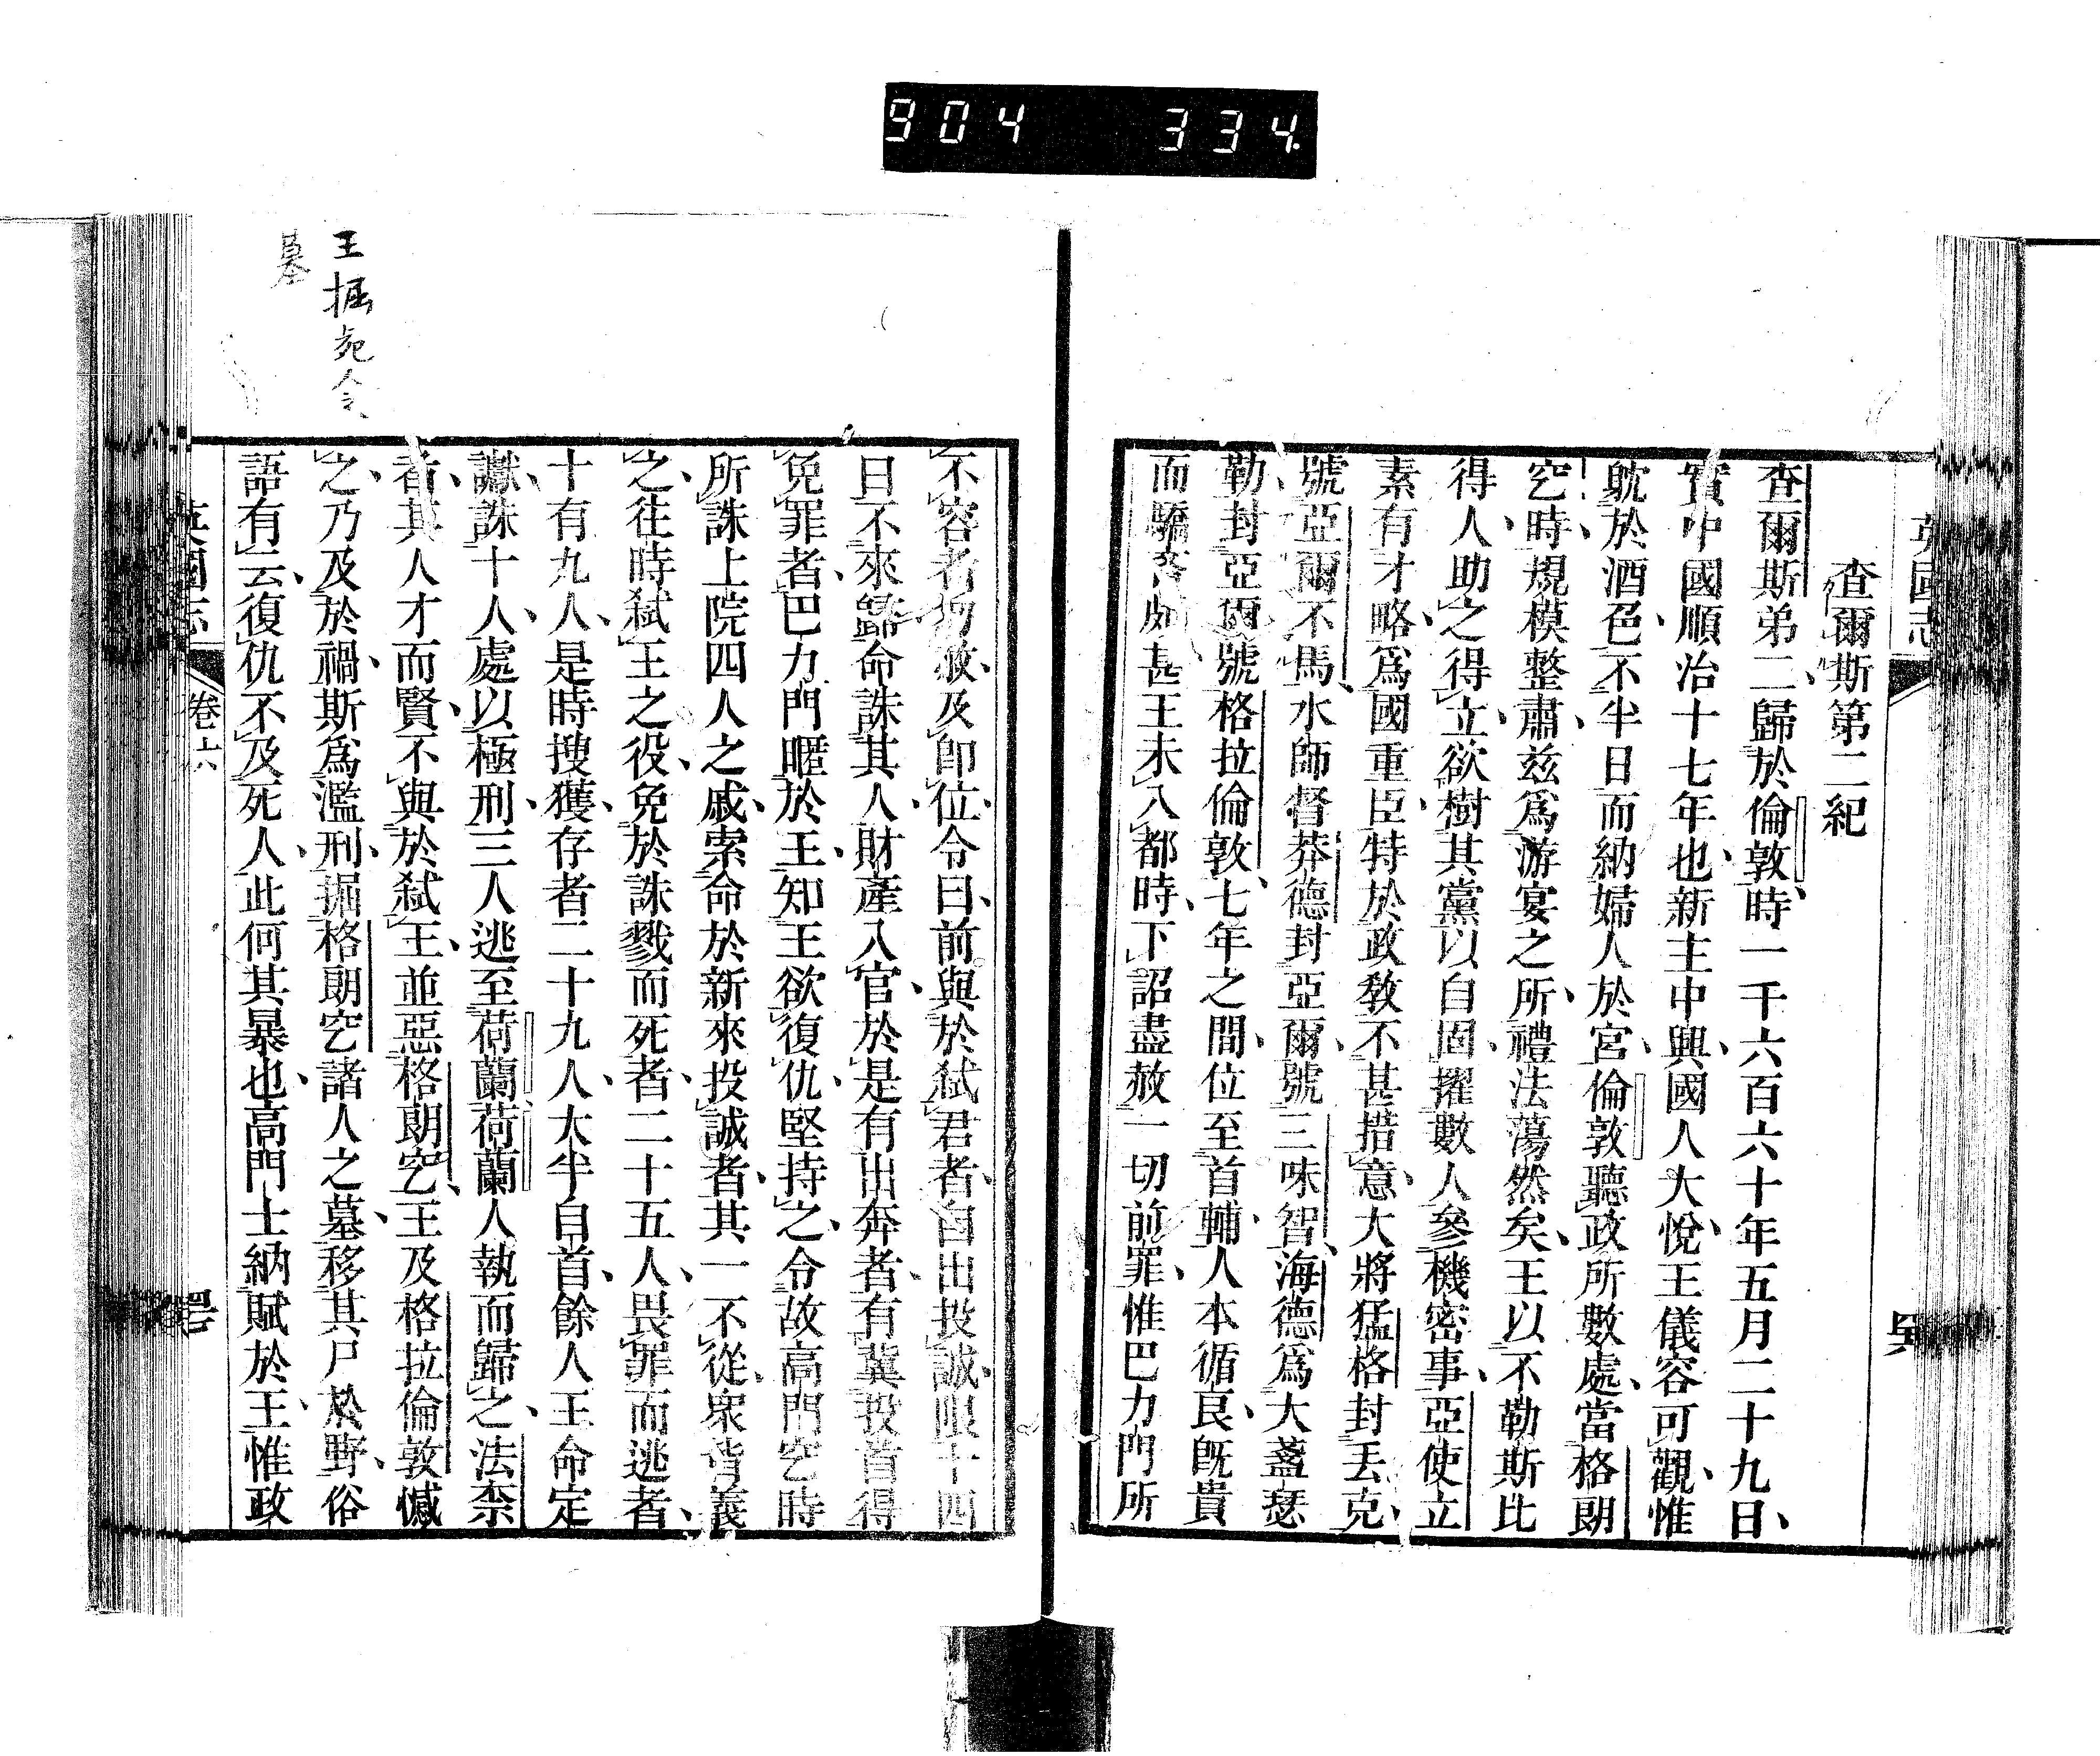 904 334
英國志
查爾斯第二紀
查爾斯弟二歸於倫敦、時一千六百六十年五月二十九日、
實中國順治十七年也、新主中興、國人大悅、王儀容可觀、惟
躭於酒色、不半日而納婦人於宮、倫敦聽政所數處、當格朗
空時、規模整肅、兹爲游宴之所、禮法蕩然矣、王以不勒斯比
得人助之得立、欲樹其黨以自固、擢數人參機密事、亞使立
素有才略、爲國重臣、特於政教不甚措意、大將猛格封丟克、
號亞爾不馬、水師督莽德封亞爾、號三味智、海德爲大盞瑟
勒、封亞爾、號格拉倫敦、七年之間、位至首輔、人本循良、旣貴
而驕吝頗甚、王未入都時、下詔盡赦一切前罪、惟巴力門所
不容者勿赦、及卽位、令曰、前與於弑君者、自出投誠、限十四
日不來歸命、誅其人、財產入官、於是有出奔者、有冀投首得
免罪者、巴力門暱於王、知王欲復仇、堅持之、令故高門空時
所誅上院四人之戚、索命於新來投誠者、其一不從、衆背義
之、往時弑王之役、免於誅戮而死者二十五人、畏罪而逃者、
十有九人、是時搜獲、存者二十九人、大半自首、餘人王命定
讞、誅十人、處以極刑、三人逃至荷蘭、荷蘭人執而歸之、法柰
者、其人才而賢、不與於弑王、並惡格朗空、王及格拉倫敦憾
之、乃及於禍、斯爲濫刑、掘格朗空諸人之墓、移其尸於野、俗
語有云、復仇不及死人、此何其暴也、高門士納賦於王、惟政
英國志
卷六
王掘死人
墓